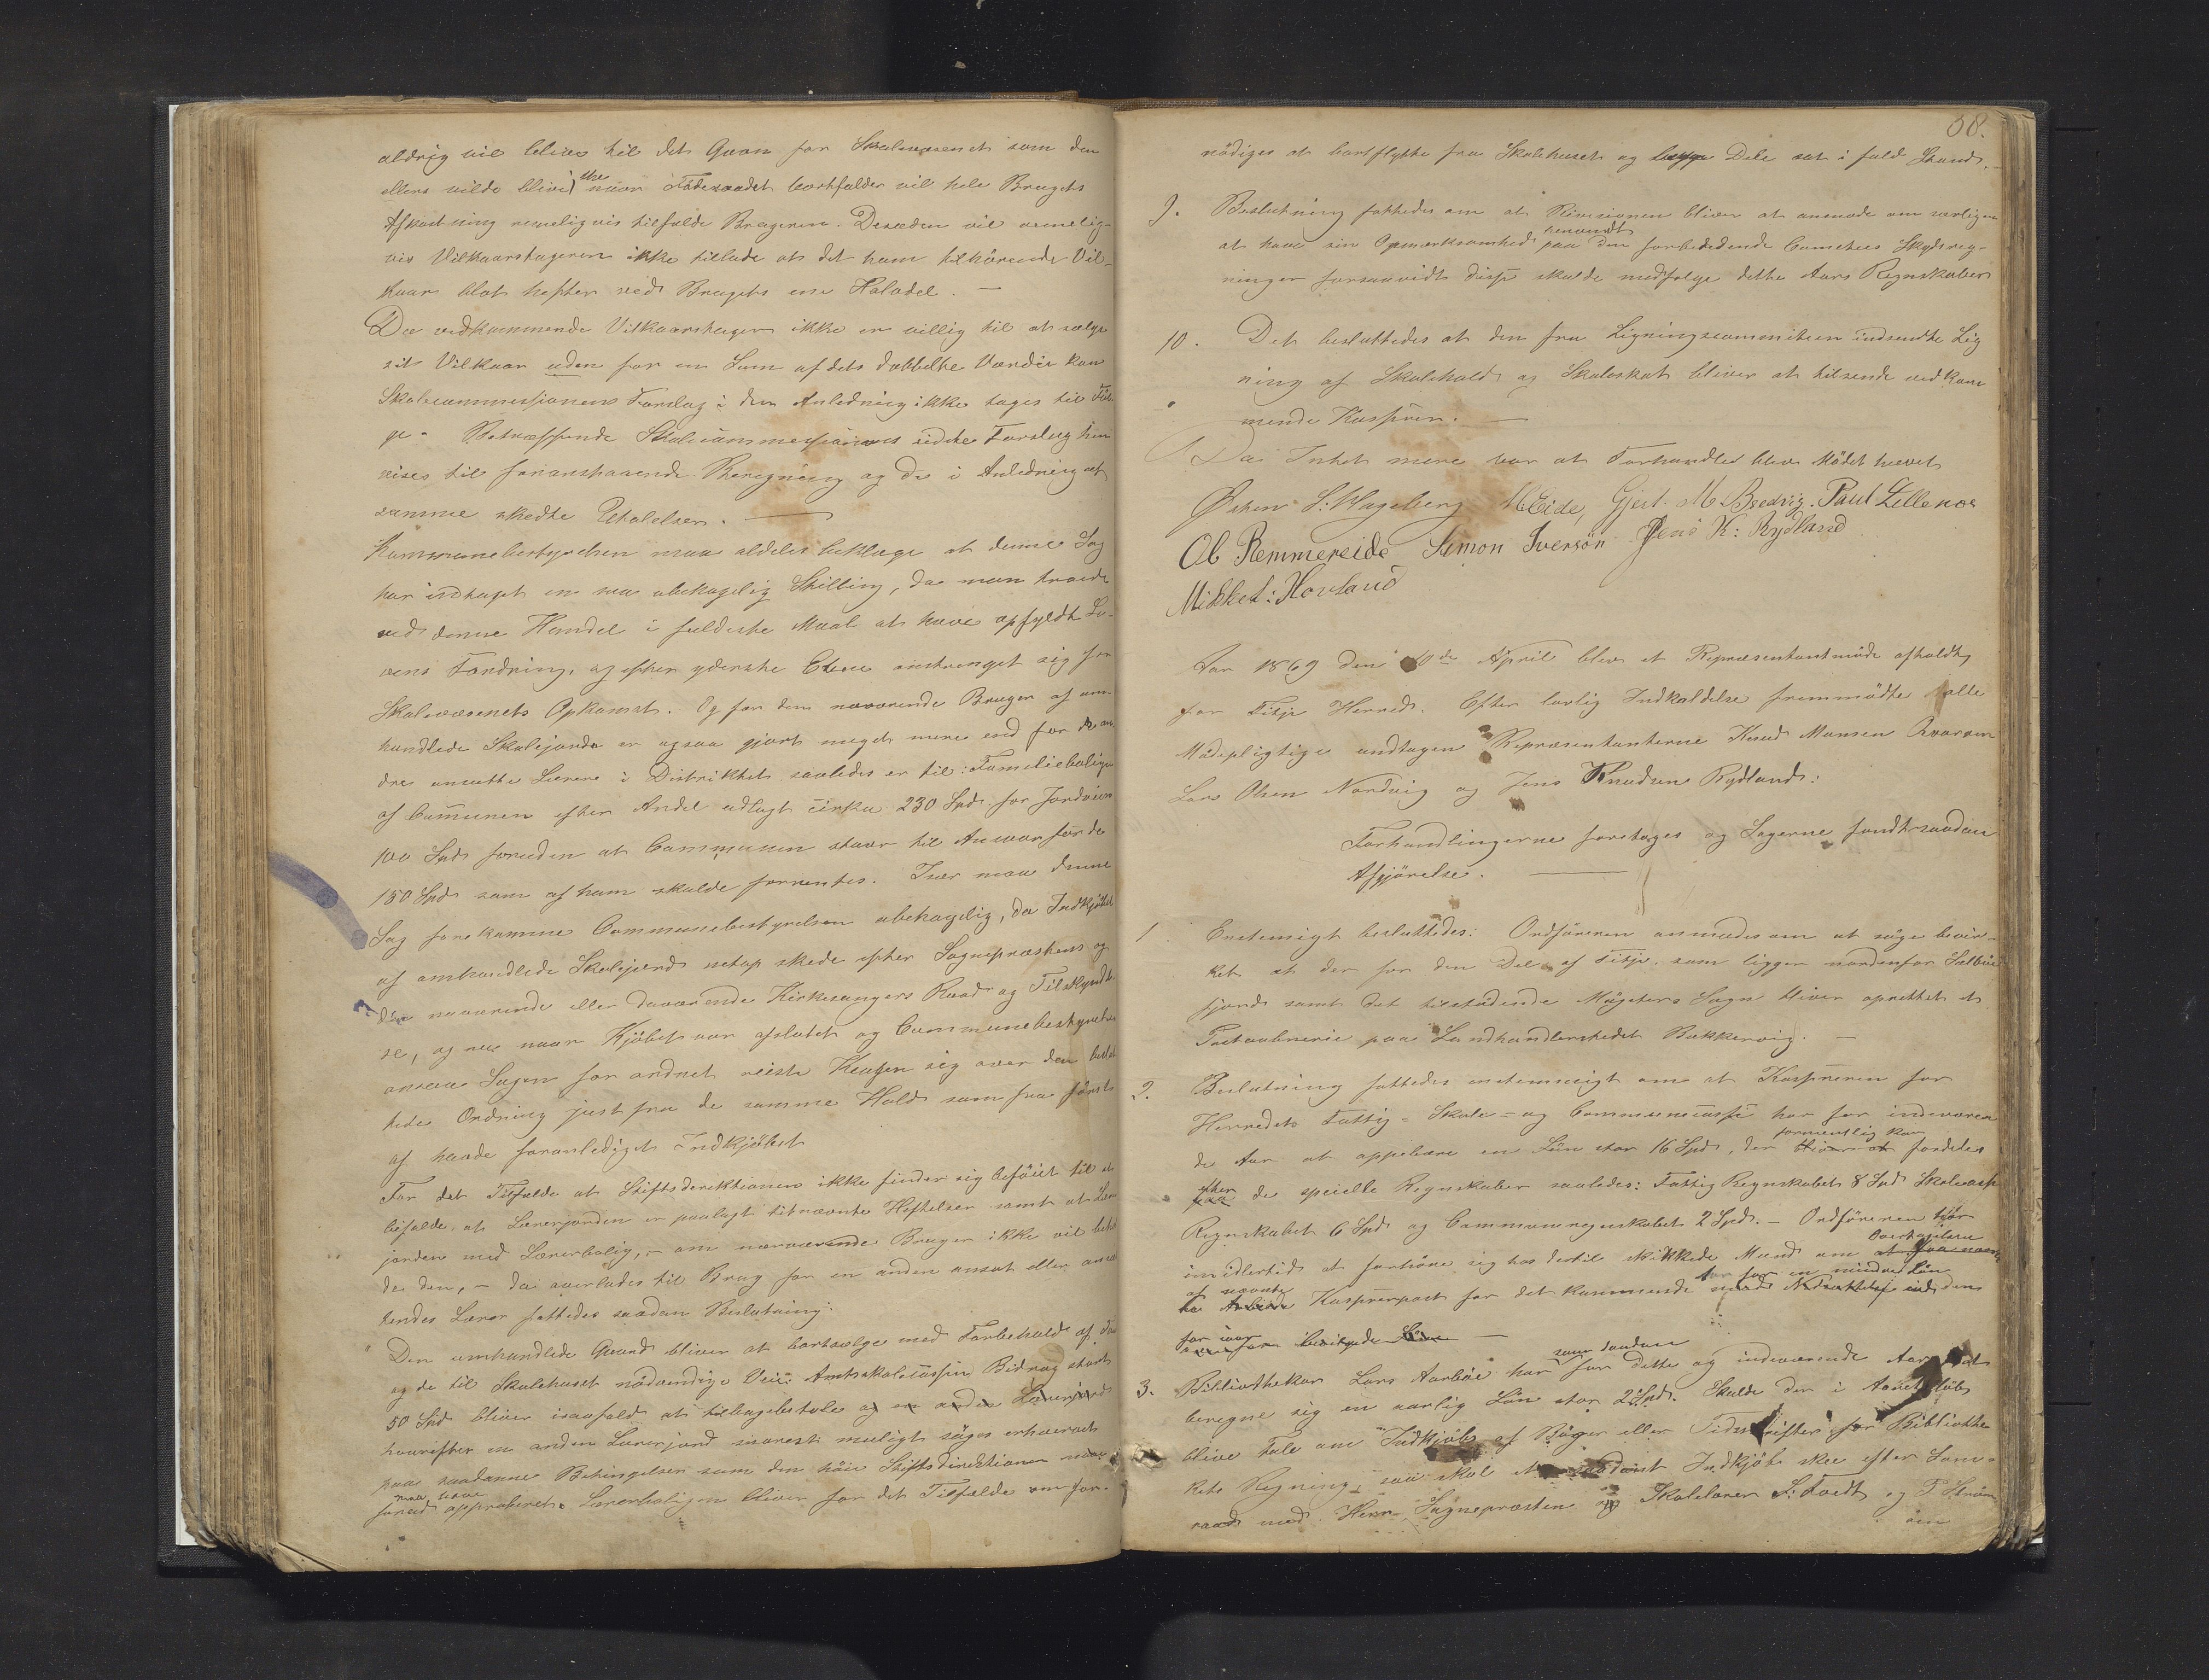 aldrig vil blive til det Gavn for Skolevæsenet som den
ellers vilde blive, thi naar Föderaadet bortfalder vil hele Brugets
Afkastning rimeligvis tilfalde Brugeren. Desuden vil rimelig-
vis Vilkaarstageren ikke tillade at det ham tilkörende Vil-
kaar blot hefter ved Brugets ene Halvdel. —
Da vedkommende Vilkaarstager ikke er villig til at sælge
sit Vilkaar uden for en Sum af dets dobbelte Værdie kan
Skolecommissionens Forslag i den Anledning ikke tages til Föl-
ge. Betræffende Skolecommissionens sidste Forslag hen
vises til foranstaaende Beregning og de i Anledning af
samme skedte Udtalelser. —
Kommunebestyrelsen maa aldeles beklage at denne Sag
har indtaget en saa ubehagelig Stilling, da man troede
ved denne Handel i fuldeste Maal at have opfyldt Lo-
vens Fordring, og efter yderste Evne anstrenget sig for
Skolevæsenets Opkomst. Og for den nuværende Bruger af om-
handlede Skolejorde er ogsaa gjort meget mere end for de an
dre ansatte Lærere i Distriktet saaledes er til: Familiebolig
af Communen efter Andel udlagt cirka 230 Spd. for Jordvei
100 Spd. foruden at Communen staar til Ansvar for de
150 Spd. som af ham skulde forrentes. Især maa denne
Sag forekomme Communebestyrelsen ubehagelig, da Indkjöbet
af omhandlede Skolejord netop skede efter Sognepræstens og
den nuværende eller daværende Kirkesangers Raad og Tilskyndel
se, og nu naar Kjöbet var afsluttet og Communebestyrelsen
ansaa Sagen for ordnet reiste Klagen sig over den beslut
tede Ordning just fra de samme Hold som fra först
af havde foranlediget Indkjöbet
For det Tilfælde at Stiftsdirektionen ikke finder sig beföiet til at
befalde, at Lærerjorden er paalagt titnævnte Heftelser samt at Lærer
jorden med Lærerbolig, – om nærværende Bruger ikke vil beta
de den, – da overlades til Brug for en anden ansat eller ansæt
tendes Lærer fattedes saadan Beslutning:
" Den omhandlede Gaard bliver at bortsælge med Forbehold af Tom
og de til Skolehuset nödvendige Veie: Amtsskolecassens Bidrag stort
50 Spd bliver isaafald at tilbagebetale og en anden Lærerjord
hvorefter en anden Lærerjord snarest muligt söges erhvervet
paa saadanne Betingelser som den höie Stiftsdirektionen maa
maa have
forud approberet. Lærerboligen bliver for det Tilfælde om for-
58.
nödiges at bortflytte fra Skolehuset og begge Dele sat i fuld Stand. —
9. Beslutning fattedes om at Revisionen bliver at anmode om særligen
at have sin Opmærksomhed henvendt paa den forberedende Comitees Skydsreg-
ninger forsaavidt disse skulde medfölge dette Aars Regnskaber
10. Det besluttedes at den fra Ligningscommiteen indsendte Lig
ning af Skolehold og Skoleskat bliver at tilsende vedkom
mende Kasserer. —
Da Intet mere var at Forhandles blev Mödet hævet
Östen S: Hageberg M Eide, Gjert M. Bredvig. Paul Lillenæs
Ob Remmereide Simon Iversön Jens K: Rydland
Mikkel: Hovland
Aar 1869 den 10de April blev et Repræsentantmöde afholdt
for Fitje Herred. Efter lovlig Indkaldelse fremmödte alle
Mödepligtige undtagen Repræsentanterne Knud Monsen
Lars Olsen Nordvig og Jens Knudsen Rydland:
Forhandlingerne foretoges og Sagerne fandt saadan
Afgjörelse. —
1. Enstemigt besluttedes: Ordföreren anmodes om at söge bevir-
ket at der for den Del af Fitje, som ligger nordenfor Selböe
fjord samt det tilstödende Mögsters Sogn bliver oprettet et
Postaabnerie paa Landhandlerstedet Bekkervig. —
2. Beslutning fattedes enstemmigt om at Kassereren for
Herredets Fattig- Skole- og Communecasse har for indeværen
de Aar at oppebære en Lön stor 16 Spd, der formentlig kan fordeles
efter de specielle Regnskaber saaledes: Fattig Regnskabet 8 Spd Skolecasse
Regnskabet 6 Spd og Communeregnskabet 2 Spd. – Ordföreren bör
imidlertid at forhöre sig hos dertil skikkede Mænd om Overtagelsen
af nævnte Kassererpost for det kommende Aar for en mindre Lön end den
for iaar bevilgede —
3. Bibliothekar Lars Aarböe har som saadan for dette og indeværende Aar at
beregne sig en aarlig Lön stor 2 Spd. Skulde der i Aarets Löb
blive Tale om Indkjöb af Böger eller Tidsskrifter for Bibliothe
kets Regning, saa skal et saadant Indkjöb skee efter Sam-
raad med Herr Sognepræsten og Skolelærer S: Tvedt og P Ström
om